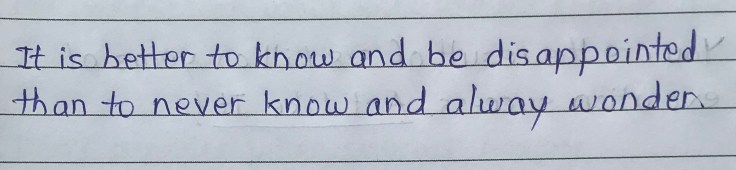 It is better to know and be disappointed
than to never know and alway wonder.